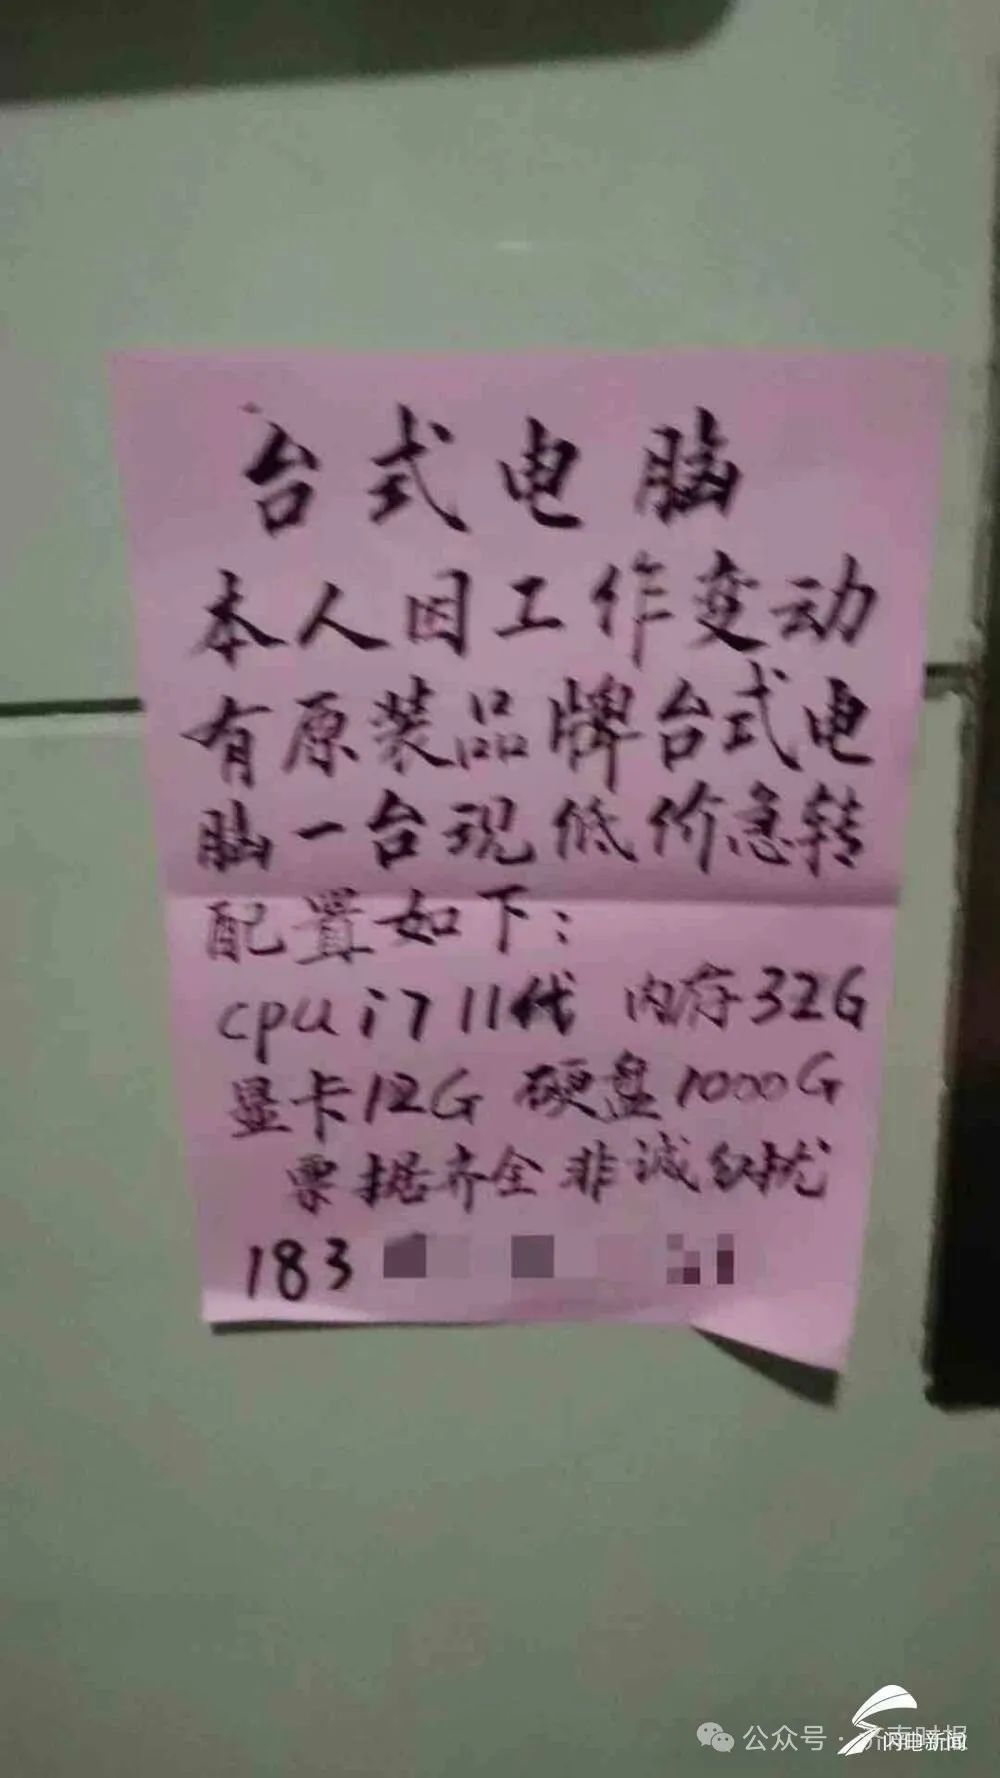 台式电脑
本人因工作变动
有原装品牌台式电
脑一台现低价急转
配置如下:
cpu i7 11代 内存32G
显卡12G 硬盘1000G
票据齐全 非诚勿扰
183
公众号·济南时报
闪电新闻